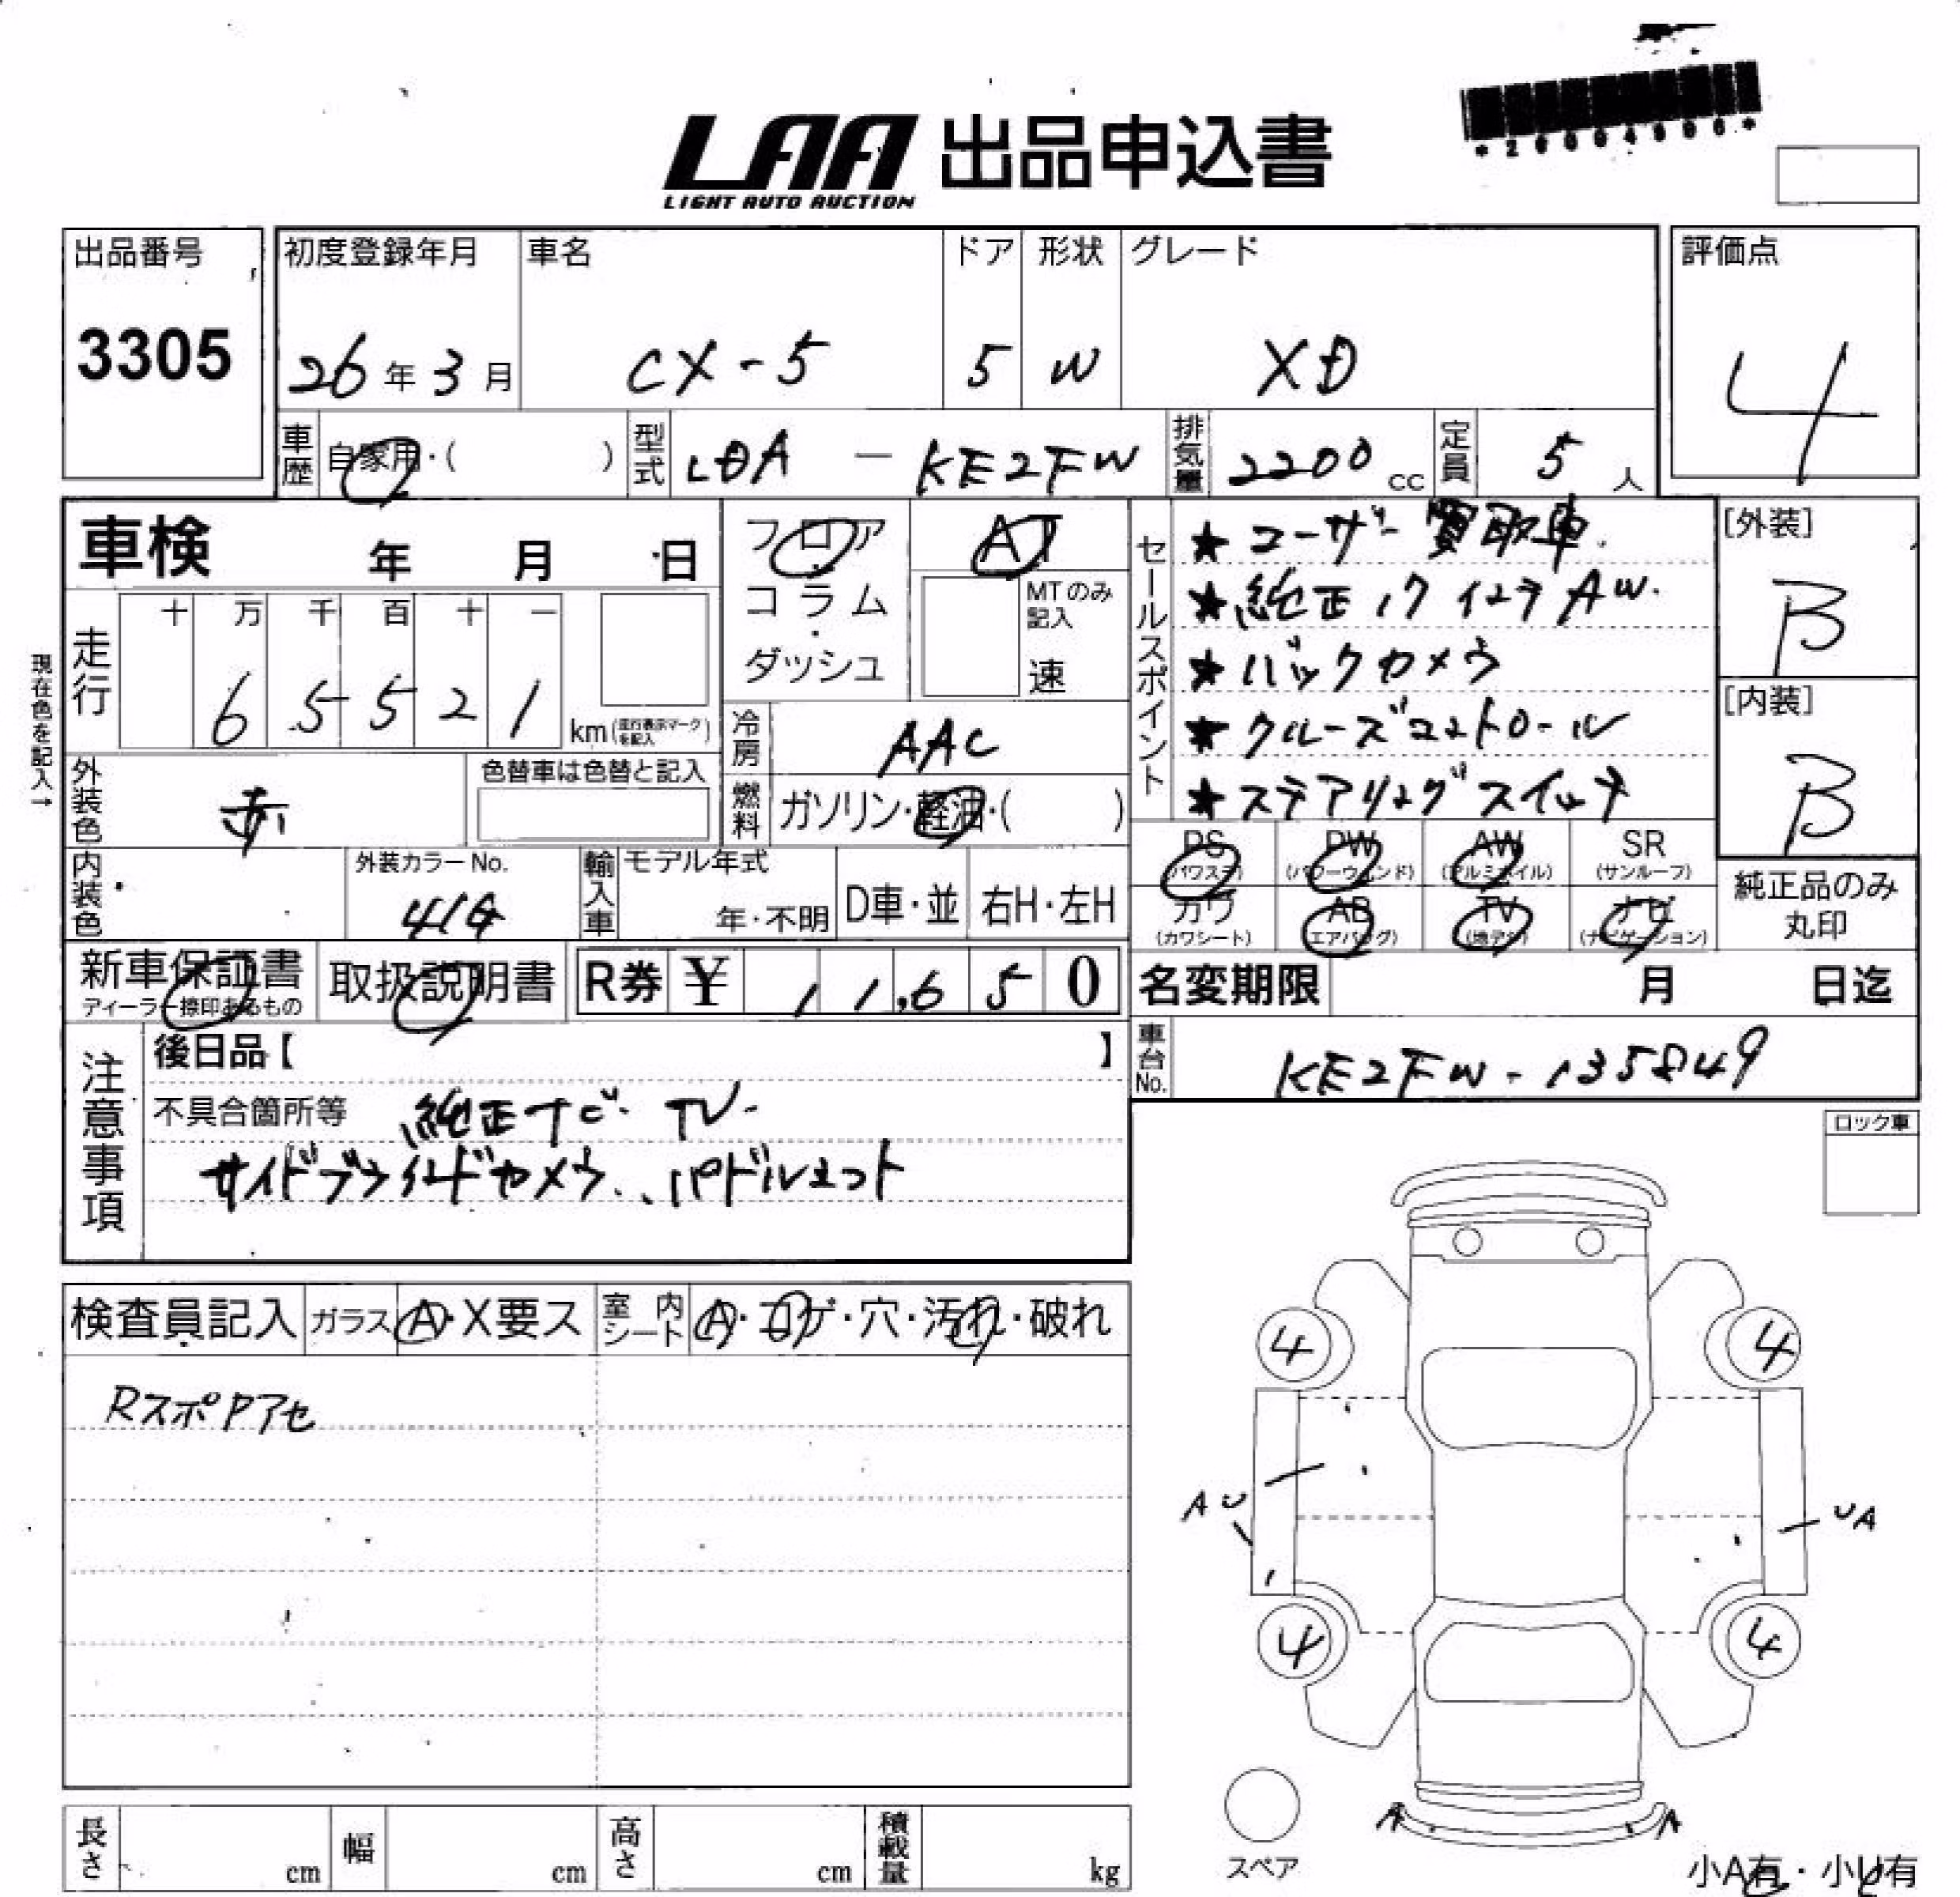 *20004906*
LAA 出品申込書
LIGHT AUTO AUCTION
出品番号
3305
初度登録年月
26年3月
車名
CX-5
ドア
5
形状
W
グレード
XD
評価点
4
車歴
自家用・( )
型式
LDA - KE2FW
排気量
2200 cc
定員
5 人
車検 年 月 日
フロア
コラム・
ダッシュ
AT
MTのみ記入
速
セールスポイント
★ユーザー買取車.
★純正17インチAW.
★バックカメラ
★クルーズコントロール
★ステアリングスイッチ
[外装]
B
[内装]
B
現在色を記入→
走行
十 万 千 百 十 一
6 5 5 2 1
km(走行表示マークを記入)
冷房
AAC
外装色
赤
色替車は色替と記入
燃料
ガソリン・軽油・( )
PS
(パワステ)
PW
(パワーウィンド)
AW
(アルミホイル)
SR
(サンルーフ)
カワ
(カワシート)
AB
(エアバッグ)
TV
(地デジ)
ナビ
(ナビゲーション)
純正品のみ
丸印
内装色
外装カラーNo.
41G
輸入車
モデル年式
年・不明
D車・並
右H・左H
新車保証書
ディーラー捺印あるもの
取扱説明書
R券 ¥ 11,650
名変期限 月 日迄
車台No.
KE2FW-135849
注意事項
後日品【 】
不具合箇所等 純正ナビ・TV・
サイドブラインドカメラ、、パドルェット
ロック車
検査員記入
ガラス
A・X要ス
室内シート
A・コゲ・穴・汚れ・破れ
Rスポ アセ
4
4
A U
U A
4
4
A
A
スペア
小A有・小U有
長さ cm
幅 cm
高さ cm
積載量 kg